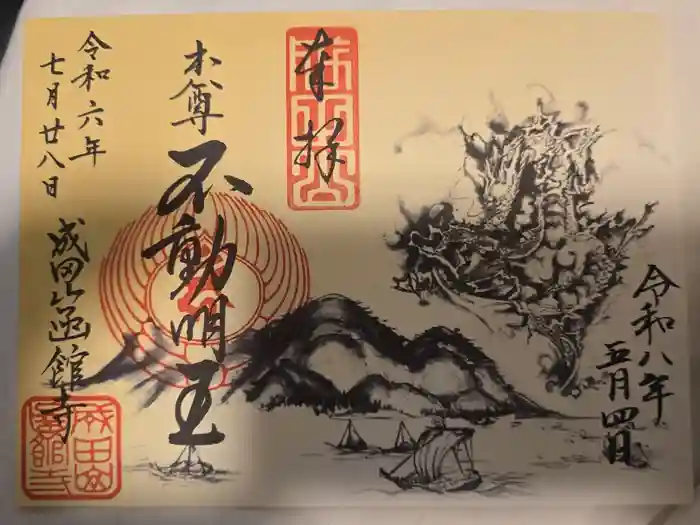 令和八年
五月四日
奉拝
本尊
不動明王
令和六年
七月廿八日
成田山函館寺
成田山
函館寺